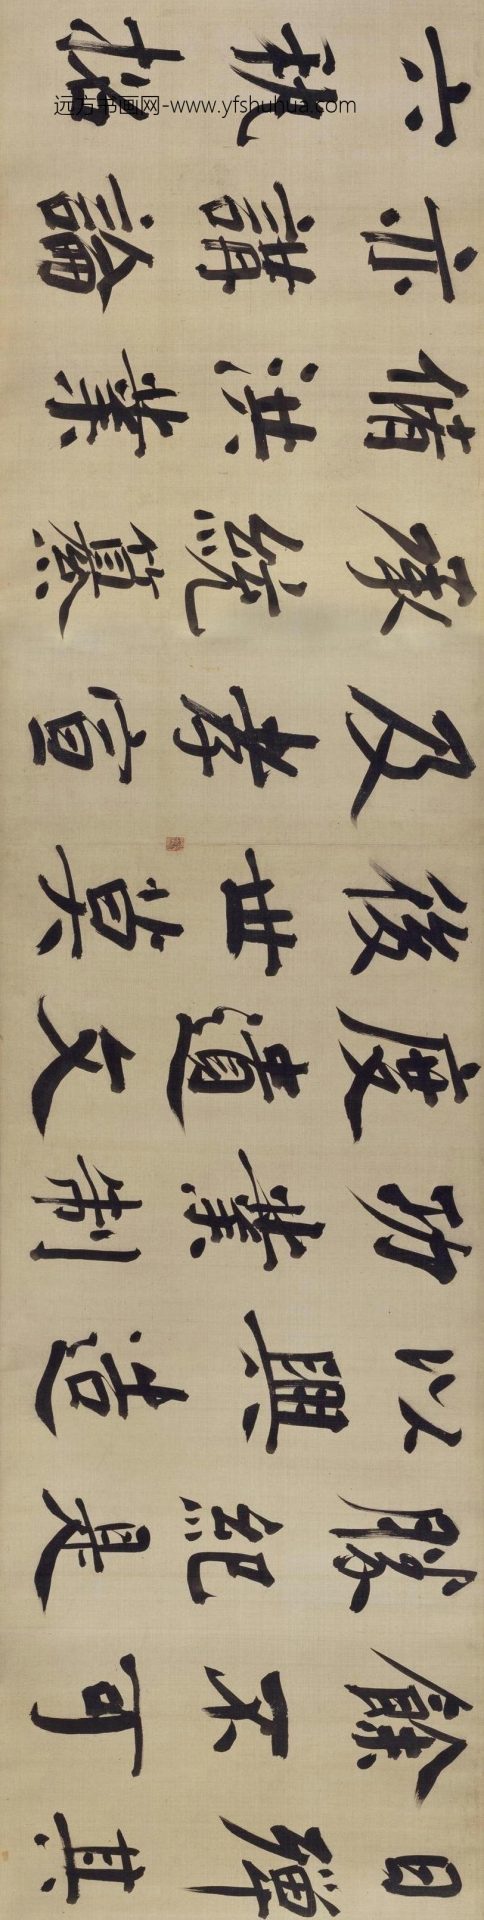 日磾其
餘不可
勝紀是
以興造
功業制
度遺文
後世莫
及孝宣
承統纂
脩洪業
亦講論
六秇招
远方书画网-www.yfshuhua.com